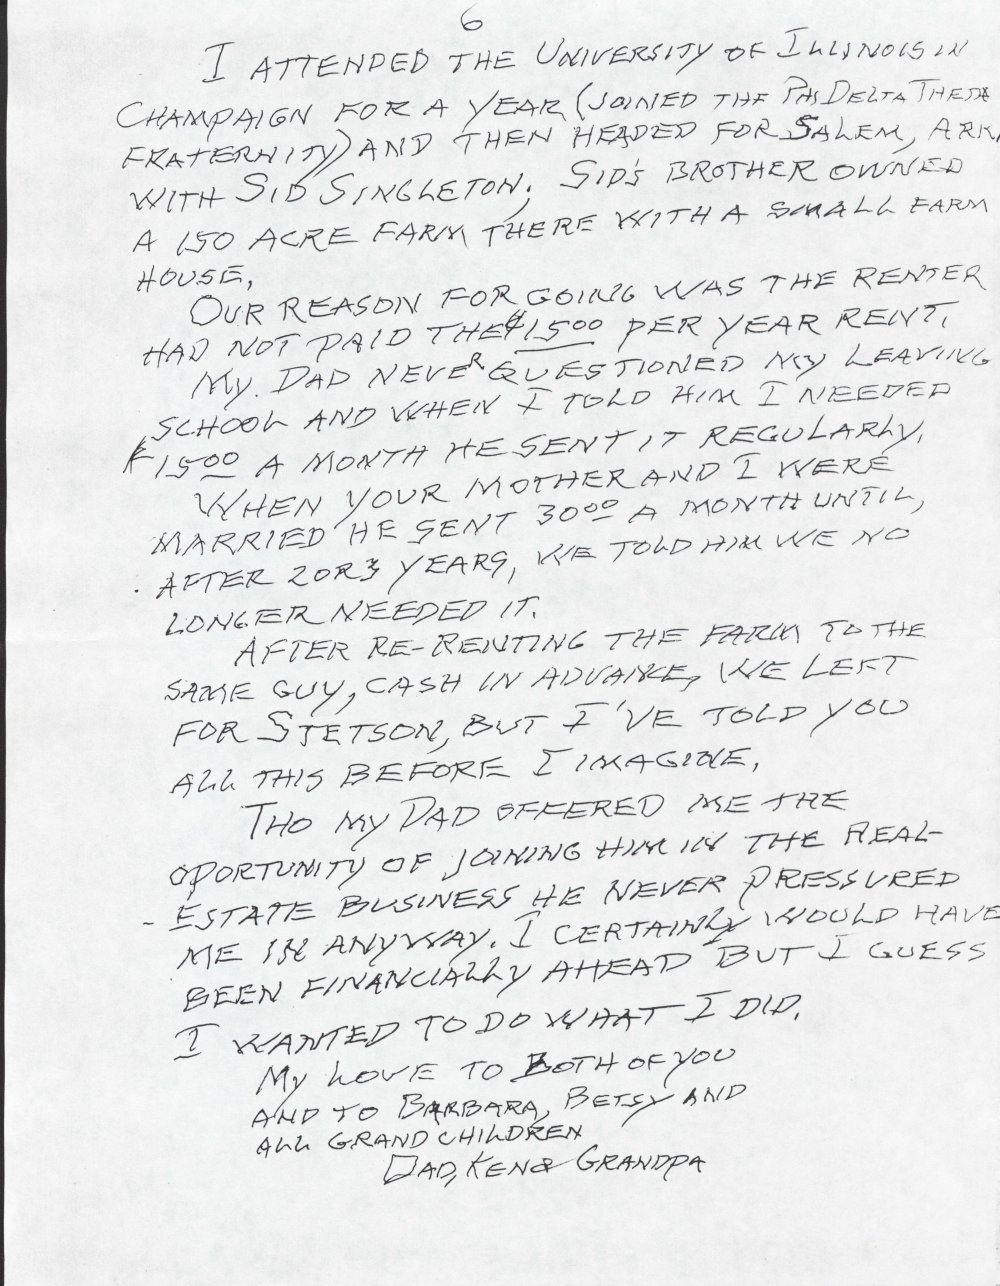 6
I ATTENDED THE UNIVERSITY OF ILLINOIS IN
CHAMPAIGN FOR A YEAR (JOINED THE PHI DELTA THETA
FRATERNITY) AND THEN HEADED FOR SALEM, ARK.
WITH SID SINGLETON; SID'S BROTHER OWNED
A 150 ACRE FARM THERE WITH A SMALL FARM
HOUSE.
OUR REASON FOR GOING WAS THE RENTER
HAD NOT PAID THE $15⁰⁰ PER YEAR RENT.
MY DAD NEVER QUESTIONED MY LEAVING
SCHOOL AND WHEN I TOLD HIM I NEEDED
15⁰⁰ A MONTH HE SENT IT REGULARLY.
WHEN YOUR MOTHER AND I WERE
MARRIED HE SENT 30⁰⁰ A MONTH UNTIL,
AFTER 2 OR 3 YEARS, WE TOLD HIM WE NO
LONGER NEEDED IT.
AFTER RE-RENTING THE FARM TO THE
SAME GUY, CASH IN ADVANCE, WE LEFT
FOR STETSON, BUT I'VE TOLD YOU
ALL THIS BEFORE I IMAGINE.
THO MY DAD OFFERED ME THE
OPORTUNITY OF JOINING HIM IN THE REAL-
ESTATE BUSINESS HE NEVER PRESSURED
ME IN ANYWAY. I CERTAINLY WOULD HAVE
BEEN FINANCIALLY AHEAD BUT I GUESS
I WANTED TO DO WHAT I DID.
MY LOVE TO BOTH OF YOU
AND TO BARBARA, BETSY AND
ALL GRANDCHILDREN
DAD, KEN & GRANDPA